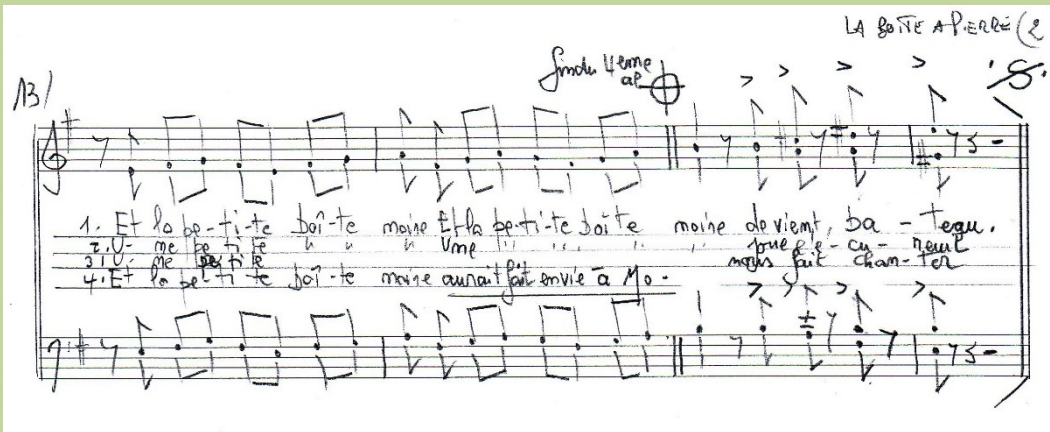 LA BOÎTE A PIERRE (2
fin du 4eme
al
13/
1. Et la pe-ti-te boî-te noire Et la pe-ti-te boîte noire devient, ba-teau.
2. U-ne pe ti te " " " Une " " " " " "
3. U-ne pe ti te nous fait chan-ter
4. Et la pe-ti te boî-te noire aurait fait envie à Mo-